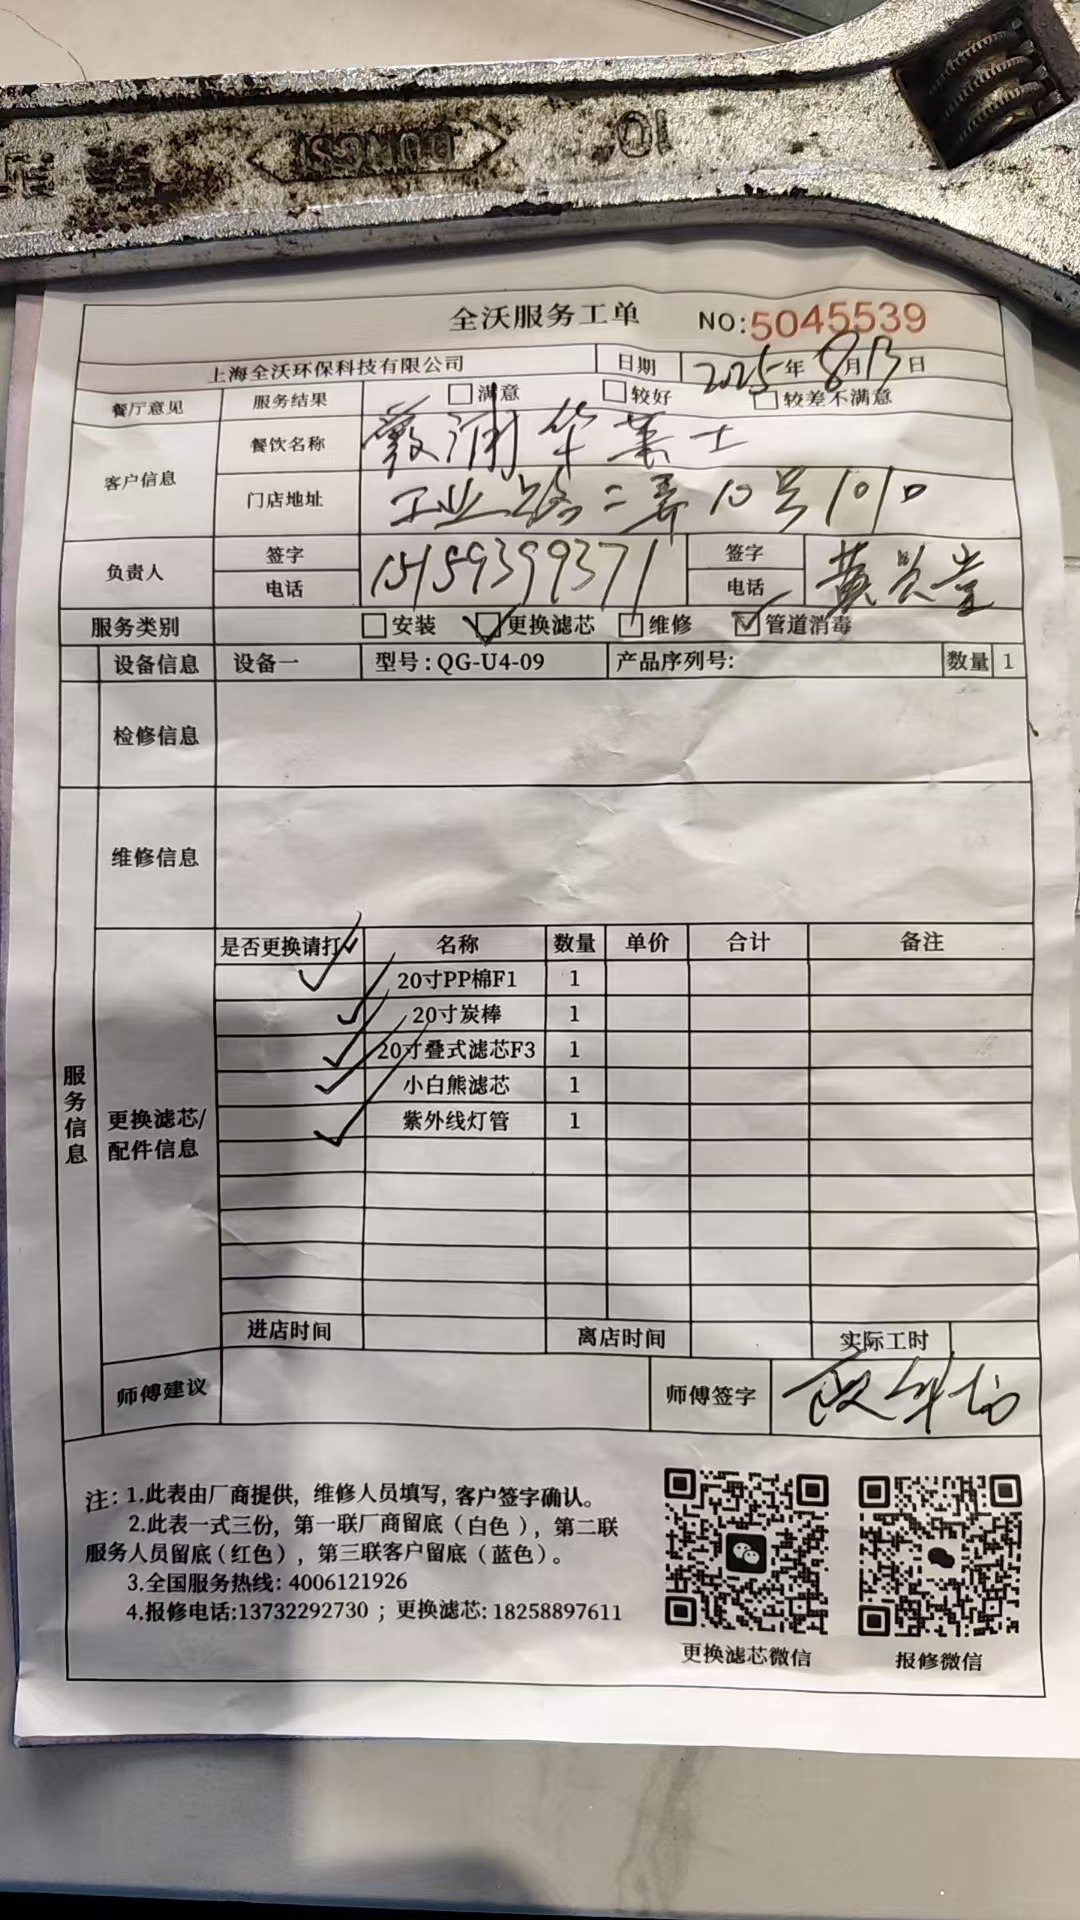 DUNGSI 10"
全沃服务工单 NO:5045539
上海全沃环保科技有限公司 日期 2025年8月13日
餐厅意见 服务结果 满意 较好 较差不满意
客户信息 餐饮名称 霞浦华莱士
门店地址 工业路二弄10号1010
负责人 签字 电话 15159399371 签字 电话 黄
服务类别 安装 更换滤芯 维修 管道消毒
设备信息 设备一 型号:QG-U4-09 产品序列号: 数量 1
检修信息
维修信息
服务信息
更换滤芯/配件信息
是否更换请打√ 名称 数量 单价 合计 备注
20寸PP棉F1 1
20寸炭棒 1
20寸叠式滤芯F3 1
小白熊滤芯 1
紫外线灯管 1
进店时间 离店时间 实际工时
师傅建议 师傅签字
注:1.此表由厂商提供,维修人员填写,客户签字确认。
2.此表一式三份,第一联厂商留底(白色),第二联
服务人员留底(红色),第三联客户留底(蓝色)。
3.全国服务热线:4006121926
4.报修电话:13732292730;更换滤芯:18258897611
更换滤芯微信 报修微信